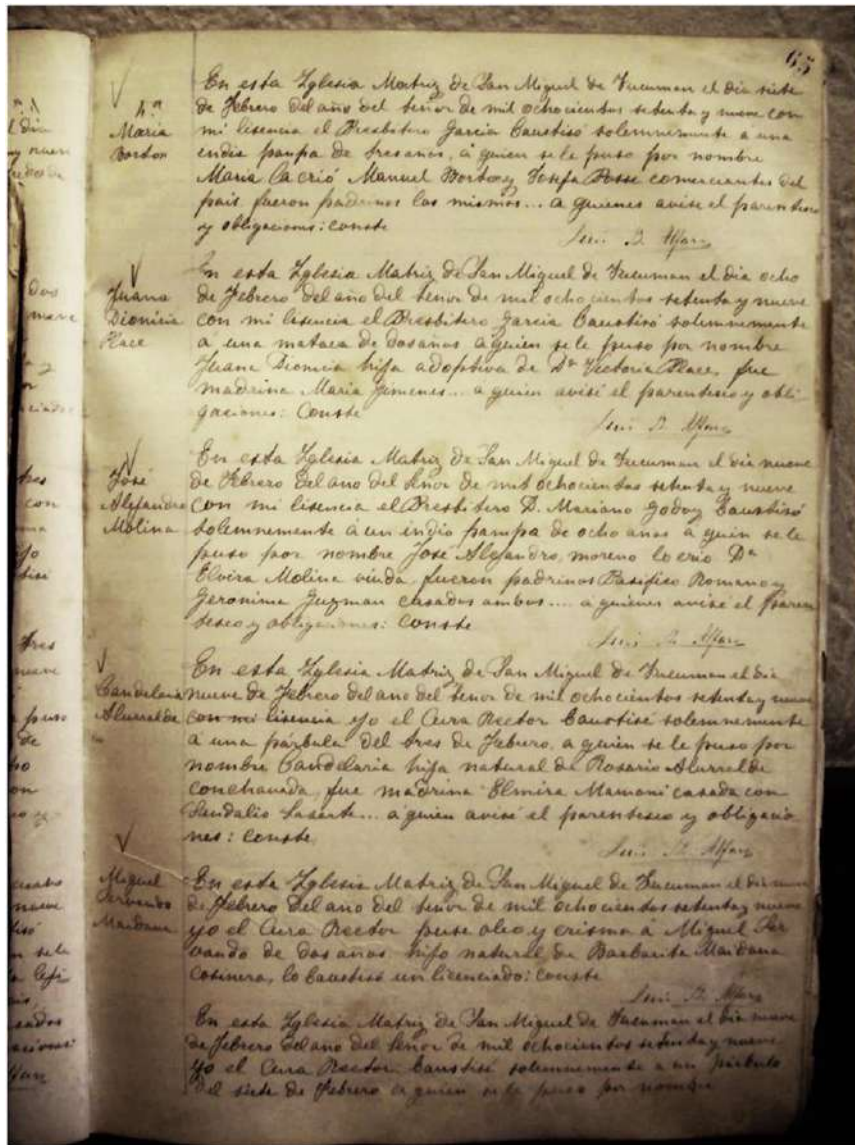 65
4.ª
María
Borton
En esta Yglesia Matriz de San Miguel de Tucuman el dia siete
de Febrero del año del Señor de mil ochocientos setenta y nueve con
mi lisencia el Presbitero Garcia bautisó solemnemente a una
india pampa de tres años, á quien se le puso por nombre
María la crió Manuel Borton y Josefa Posse comerciantes del
pais fueron padrinos los mismos... a quienes avisé el parentesco
y obligaciones: conste
Luis B. Alfaro
Juana
Dionicia
Place
En esta Yglesia Matriz de San Miguel de Tucuman el dia ocho
de Febrero del año del Señor de mil ochocientos setenta y nueve
con mi lisencia el Presbitero Garcia bautisó solemnemente
a una mataca de dos años a quien se le puso por nombre
Juana Dionicia hija adoptiva de Dª Victoria Place, fue
madrina Maria Jimenes... a quien avisé el parentesco y obli-
gaciones: Conste
Luis B. Alfaro
José
Alejandro
Molina
En esta Yglesia Matriz de San Miguel de Tucuman el dia nueve
de Febrero del año del Señor de mil ochocientos setenta y nueve
con mi lisencia el Presbitero D. Mariano Godoy bautisó
solemnemente á un indio pampa de ocho años a quien se le
puso por nombre José Alejandro, moreno lo crio Dª
Elvira Molina viuda, fueron padrinos Pasifico Romano y
Geronima Guzman casados ambos.... a quienes avisé el paren
tesco y obligaciones: Conste
Luis B. Alfaro
Candelaria
Alurralde
En esta Yglesia Matriz de San Miguel de Tucuman el dia
nueve de Febrero del año del Señor de mil ochocientos setenta y nueve
con mi lisencia yo el Cura Rector bautisé solemnemente
á una párbula del tres de Febrero, a quien se le puso por
nombre Candelaria hija natural de Rosario Alurralde
conchavada, fue madrina Elmira Mamani casada con
Sandalio... a quien avisé el parentesco y obligacio
nes: conste
Luis B. Alfaro
Miguel
Servando
Maidana
En esta Yglesia Matriz de San Miguel de Tucuman el dia nueve
de Febrero del año del Señor de mil ochocientos setenta y nueve
yo el Cura Rector puse oleo y crisma á Miguel Ser
vando de dos años, hijo natural de Barbarita Maidana
cosinera, lo bautisó un licenciado: conste
Luis B. Alfaro
En esta Yglesia Matriz de San Miguel de Tucuman el dia nueve
de Febrero del año del Señor de mil ochocientos setenta y nueve
yo el Cura Rector bautisé solemnemente a un párbulo
del siete de Febrero a quien se le puso por nombre